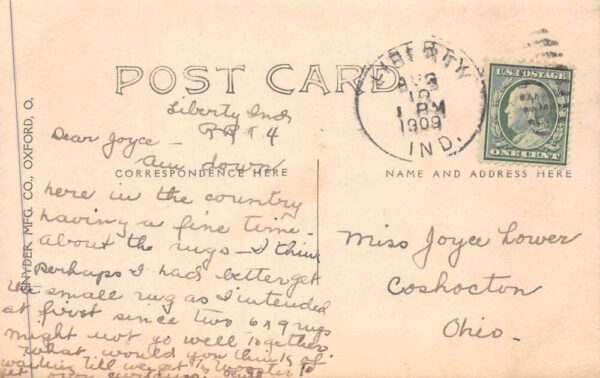 POST CARD
LIBERTY
AUG
10
1 PM
1909
IND.
U.S. POSTAGE
ONE CENT
SNYDER MFG. CO., OXFORD, O.
CORRESPONDENCE HERE
NAME AND ADDRESS HERE
Liberty Ind
RR # 4
Dear Joyce -
Am down
here in the country
having a fine time -
about the rugs - I think
perhaps I had better get
the small rug as I intended
at first since two 6x9 rugs
might not go well together.
what would you think of
waiting till we get to Wooster to
get our curtains.
Miss Joyce Lower
Coshocton
Ohio.